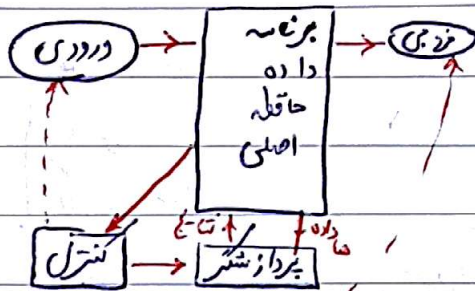 ورودی
برنامه
داده
حافظه
اصلی
خروجی
کنترل
نتایج
داده
ها
پردازشگر